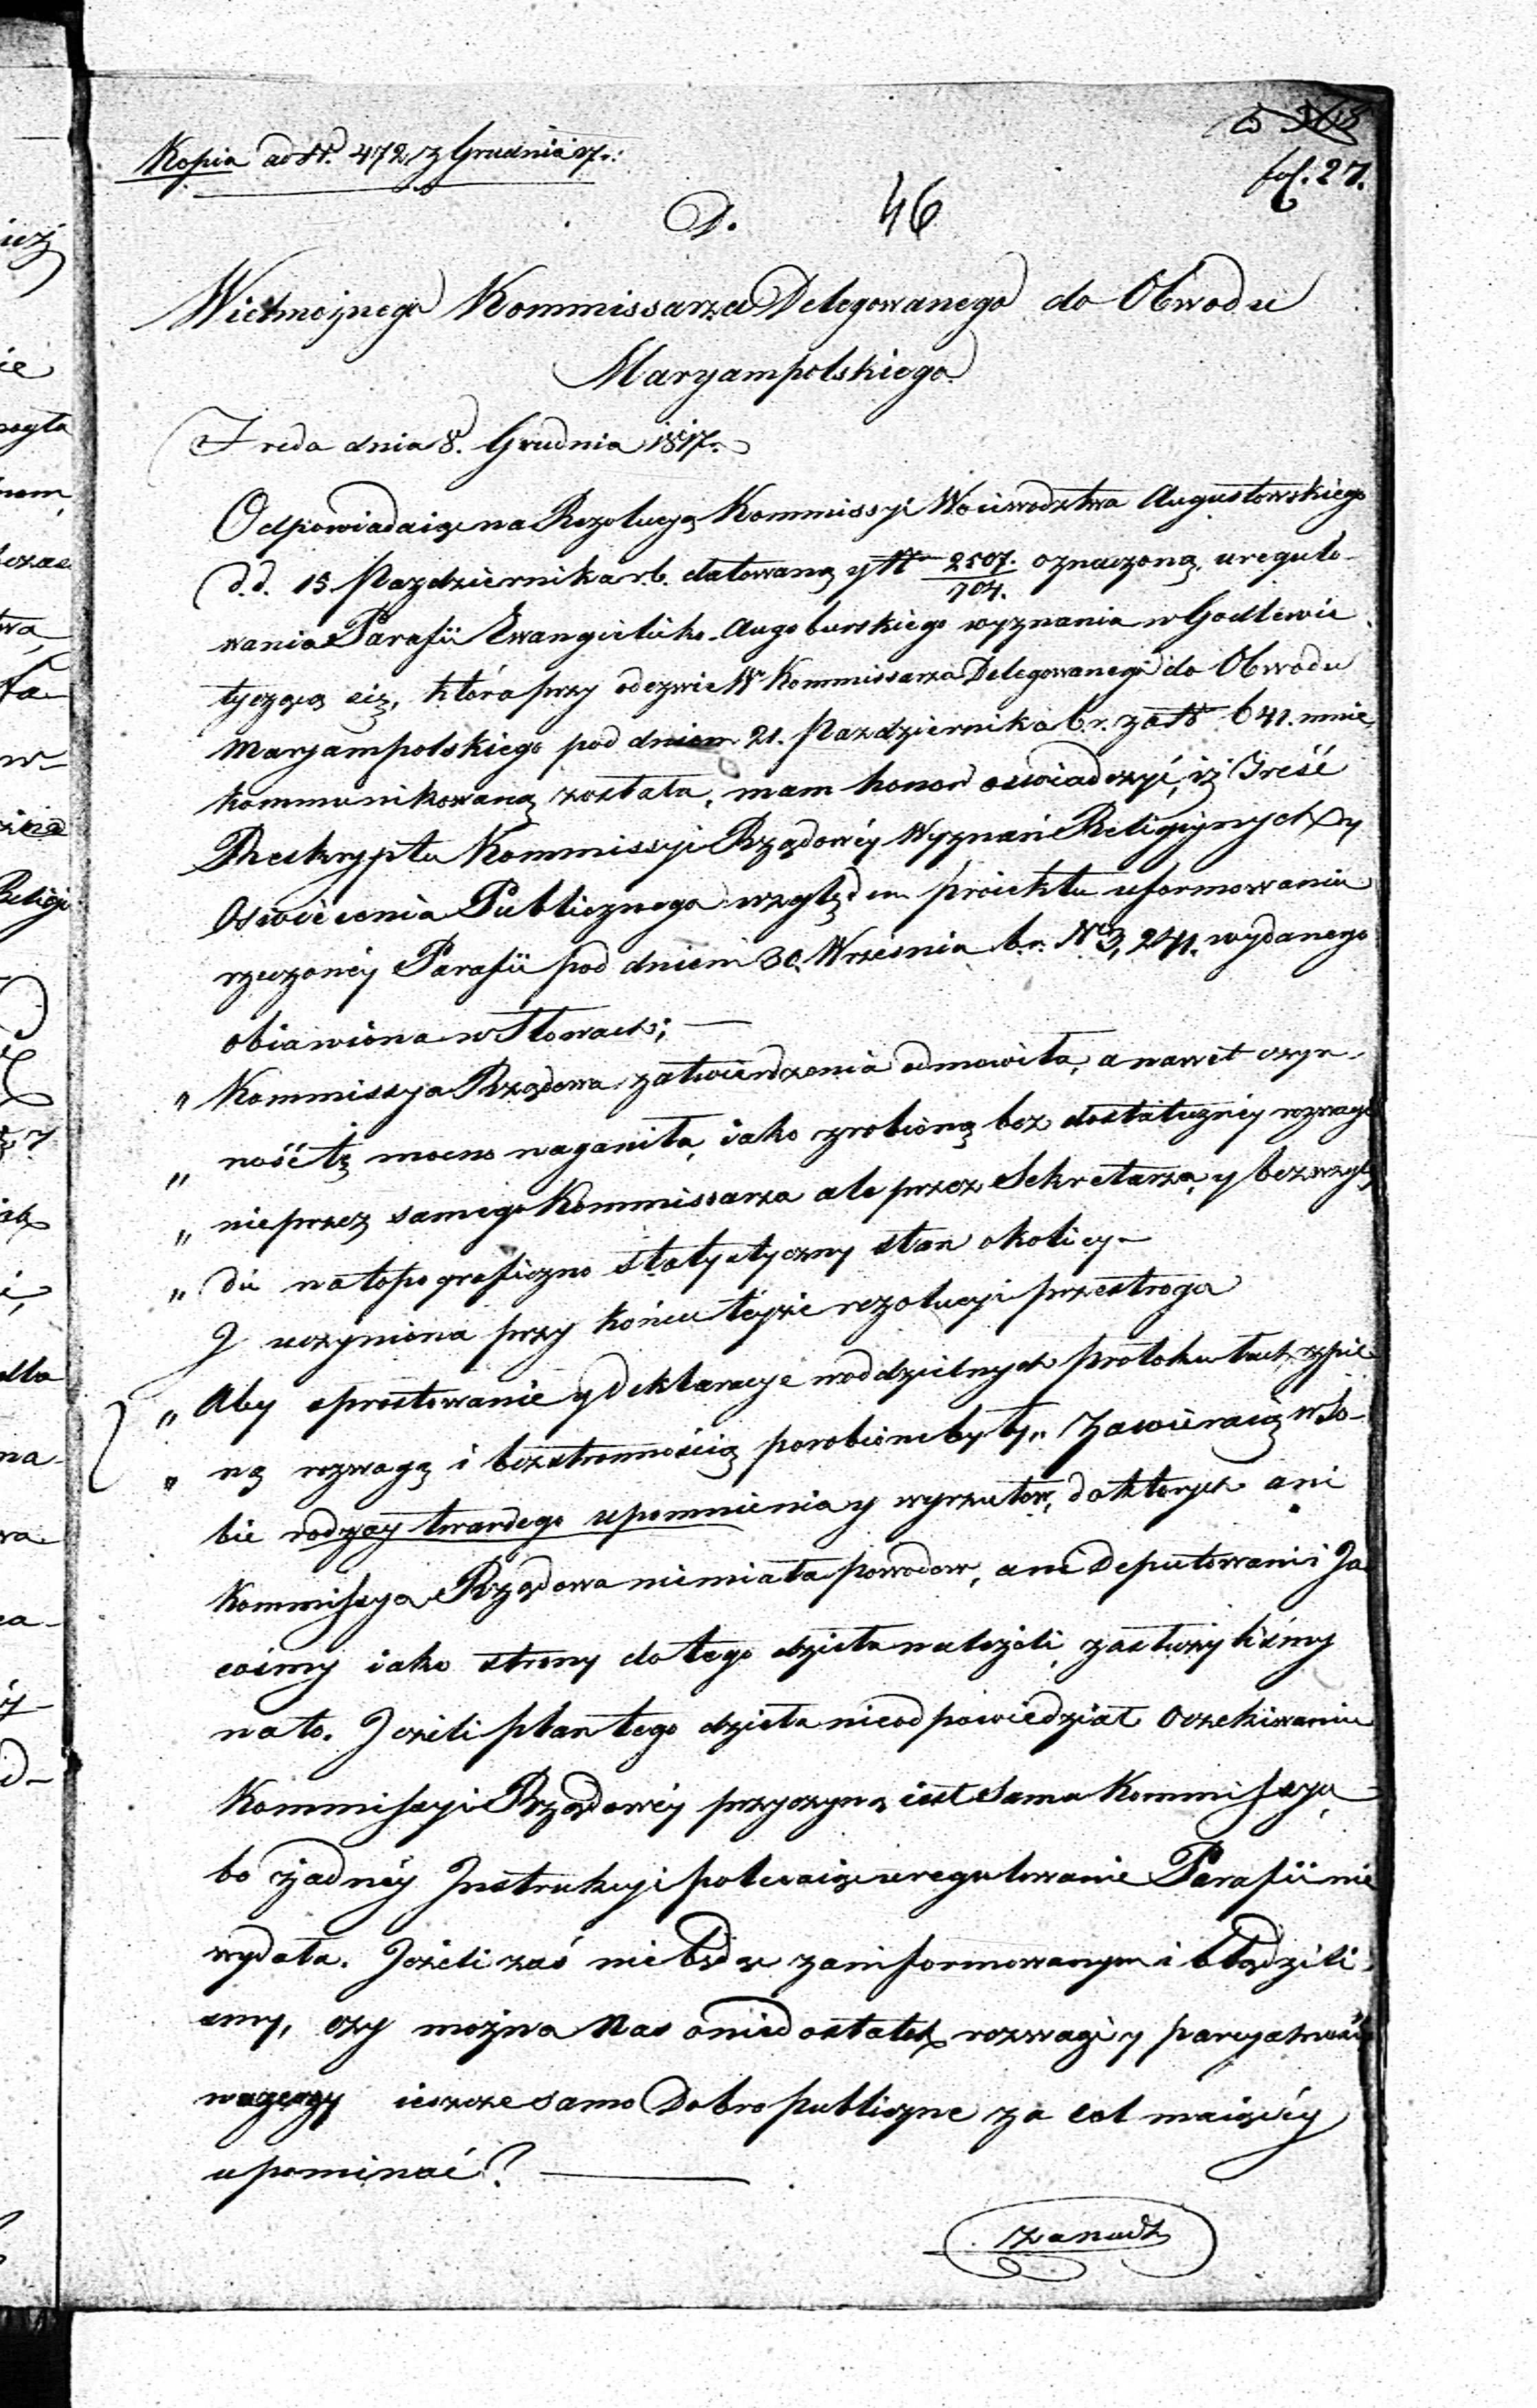 Kopia ad N. 472 z Grudnia 17r:
fol. 27.
D. 46
Wielmożnego Kommissarza Delegowanego do Obwodu
Maryampolskiego
Freda dnia 8. Grudnia 1817.
Odpowiadaiąc na Rezolucyą Kommissyi Woiewodztwa Augustowskiego
d.d. 15 Pazdziernika r.b. datowaną y N 2507./704. oznaczoną, uregulo-
wania Parafii Ewangelicko-Augsburskiego wyznania w Godlewie
tyczącą się, która przy odezwie W Kommissarza Delegowanego do Obwodu
Maryampolskiego pod dniem 21. Pazdziernika b.r. za N 641. mnie
kommunikowaną została, mam honor oswiadczyć, iż Treść
Reskryptu Kommissyi Rządowéy Wyznań Religiynych y
Oswiecenia Publicznego względem proiektu uformowania
rzeczonéy Parafii pod dniem 30. Wrzesnia b.r. No 3,241. wydanego
obiawiona w Słowach; —
„ Kommissya Rządowa zatwierdzenia odmowiła, a nawet czyn-
„ ność tę mocno naganiła, iako zrobioną bez dostateczney rozwagi
„ nie przez samego Kommissarza ale przez Sekretarza, y bez wzglę
„ du na topograficzno statystyczny stan okolicy —
I uczyniona przy końcu teyże rezolucyi przestroga
„ Aby sprostowanie y Deklaracye w oddzielnych protokułach z pil
„ ną rozwagą i bezstronnością porobione były„ Zawieraią w So-
bie rodzay twardego upomnienia y wyrzutow, do ktorych ani
Kommissya Rządowa niemiała powodow, ani Deputowani i Ja
cośmy iako strony do tego dzieła należeli, zasłużyliśmy
na to. Jeżeli plan tego dzieła nieodpowiedział Oczekiwaniu
Kommissyi Rządowéy przyczyną iest Sama Kommissya,
bo żadnéy Instrukcyi polecaiąc uregulowanie Parafii nie
wydała. Jeżeli zaś nie będąc zainformowanymi błądzili
smy, czy można Nas o niedostatek rozwagi y parcyalność
ieszcze samo Dobro publiczne za cel maiącéy
upominać? —